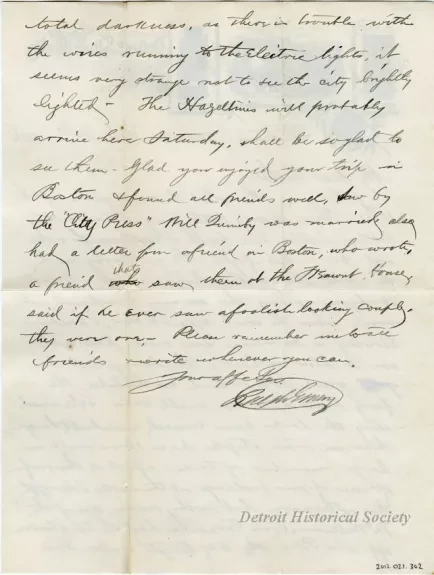 total darkness, as there is trouble with
the wires running to the Electric lights, it
seems very strange not to see the city brightly
lighted - The Hazeltines will probably
arrive here Saturday, shall be so glad to
see them - Glad you enjoyed your trip in
Boston & found all friends well, saw by
the "City Press" Will Quimby was married, also
had a letter from a friend in Boston, who wrote,
a friend that saw them at the Tremont House,
said if he ever saw a foolish looking couple,
they were one - Please remember me to all
friends & write whenever you can.
Your affec
Ralph Emery
Detroit Historical Society
2012.021.302